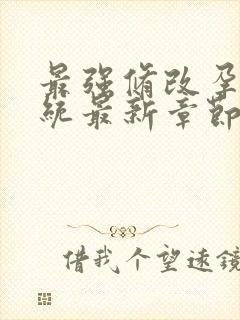 最强修改孕
统最新章节
借我个望远镜